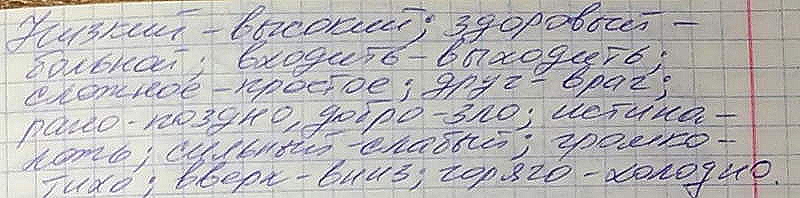 Низкий - высокий; здоровый -
больной; входить - выходить;
сложное - простое; друг - враг;
рано - поздно, добро - зло; истина -
ложь; сильный - слабый; громко -
тихо; вверх - вниз; горяго - холодно.